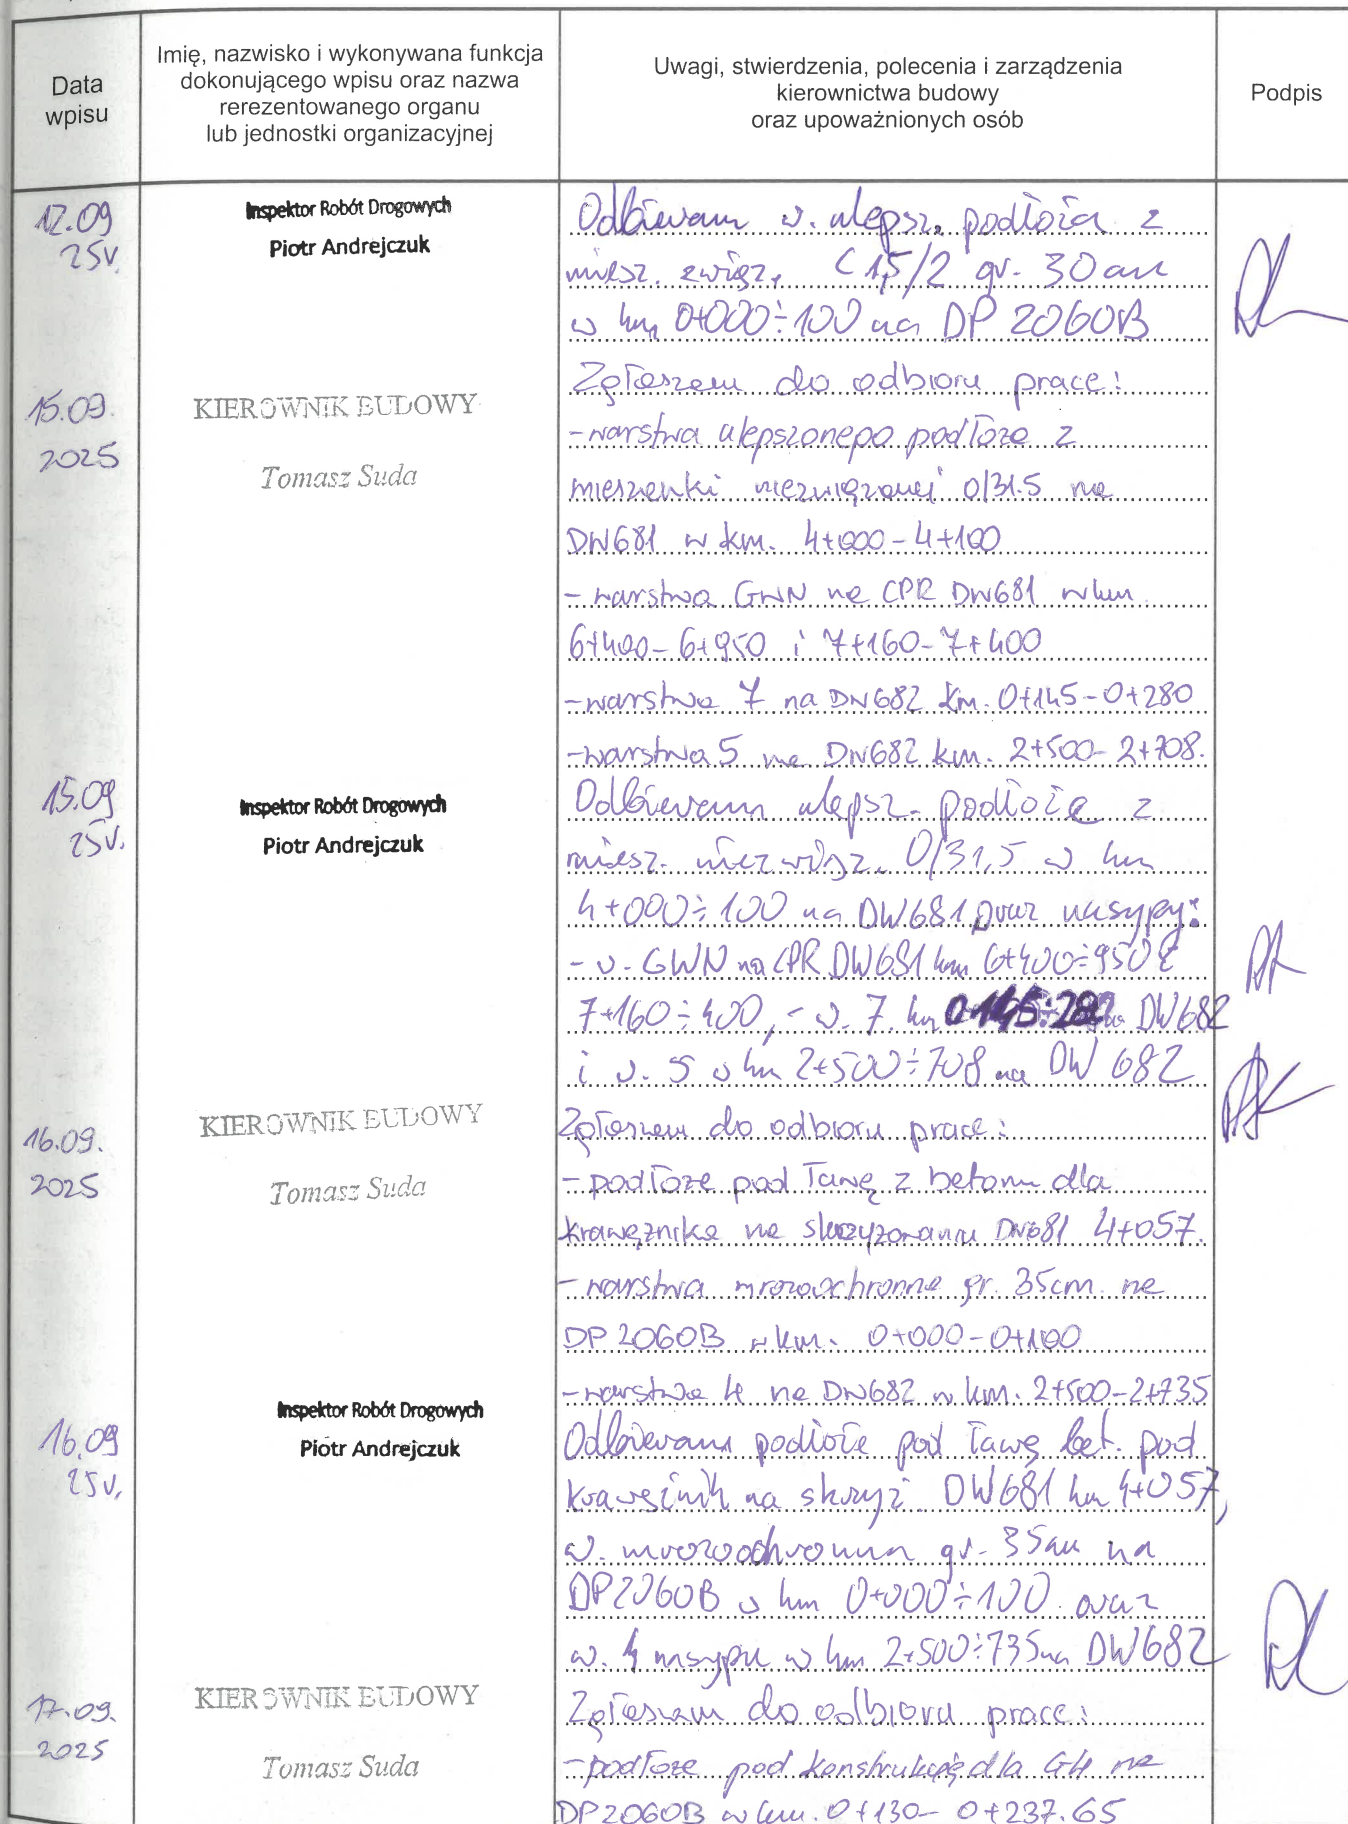 Data
wpisu
Imię, nazwisko i wykonywana funkcja
dokonującego wpisu oraz nazwa
rerezentowanego organu
lub jednostki organizacyjnej
Uwagi, stwierdzenia, polecenia i zarządzenia
kierownictwa budowy
oraz upoważnionych osób
Podpis
12.09
25r.
Inspektor Robót Drogowych
Piotr Andrejczuk
Odbieram w. ulepsz. podłoża z
miesz. związ. C 1,5/2 gr. 30 cm
w km 0+000÷100 na DP 2060B
15.09.
2025
KIEROWNIK BUDOWY
Tomasz Suda
Zgłaszam do odbioru prace:
- warstwa ulepszonego podłoża z
mieszanki niezwiązanej 0/31.5 na
DW681 w km. 4+000-4+100
- warstwa GWN na CPR DW681 w km
6+400-6+950 i 7+160-7+400
- warstwa 7 na DW682 km. 0+145-0+280
- warstwa 5 na DW682 km. 2+500-2+708.
15.09
25r.
Inspektor Robót Drogowych
Piotr Andrejczuk
Odbieram ulepsz. podłoże z
miesz. niezwiąz. 0/31,5 w km
4+000÷100 na DW681 oraz nasypy:
- w. GWN na CPR DW681 km 6+400÷950 i
7+160÷400, - w. 7. km DW682
i w. 5 w km 2+500÷708 na DW 682
16.09.
2025
KIEROWNIK BUDOWY
Tomasz Suda
Zgłaszam do odbioru prace:
- podłoże pod ławę z betonu dla
krawężnika na skrzyżowaniu DW681 4+057.
- warstwa mrozochronna gr. 35cm na
DP 2060B w km. 0+000-0+100
- warstwa 4 na DW682 w km. 2+500-2+735
16.09
25r.
Inspektor Robót Drogowych
Piotr Andrejczuk
Odbieram podłoże pod ławę bet. pod
krawężnik na skrzyż. DW681 km 4+057,
w. mrozoochronna gr. 35cm na
DP2060B w km 0+000÷100 oraz
w. 4 nasypu w km 2+500÷735 na DW682
17.09.
2025
KIEROWNIK BUDOWY
Tomasz Suda
Zgłaszam do odbioru prace:
- podłoże pod konstrukcję dla G4 na
DP2060B w km. 0+130- 0+237.65